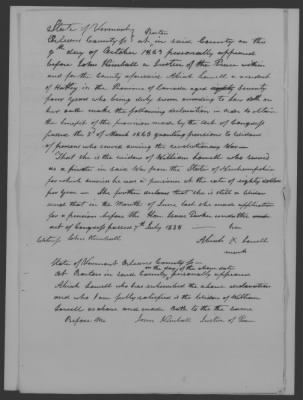 State of Vermont Barton
Orleans County ss At in said County on this
9th day of October 1843 personally appeared
before John Kimball a Justice of the Peace within
and for the County aforesaid Abiah Lowell a resident
of Hatley in the Province of Canada aged eighty seventy
years who being duly sworn according to law doth on
her oath make the following declaration in order to obtain
the benefit of the provision made by the Act of Congress
passed the 3d of March 1843 granting pensions to widows
of persons who served during the revolutionary War
That she is the widow of William Lowell who served
as a private in said War from the State of Newhampshire
for which service he was a pensioner at the rate of eighty dollars
per year - She further declares that she is still a widow
and that in the Month of June last she made application
for a pension before the Hon. Isaac Parker under the
act of Congress passed 7th July 1838 her
John Kimball Abiah X Lowell
mark
State of Vermont Orleans County ss
on the day of the above date
At Barton in said County personally appeared
Abiah Lowell who has subscribed the above declaration
and who I am fully satisfied is the Widow of William
Lowell as above and made oath to the same
Before me John Kimball Justice of Peace